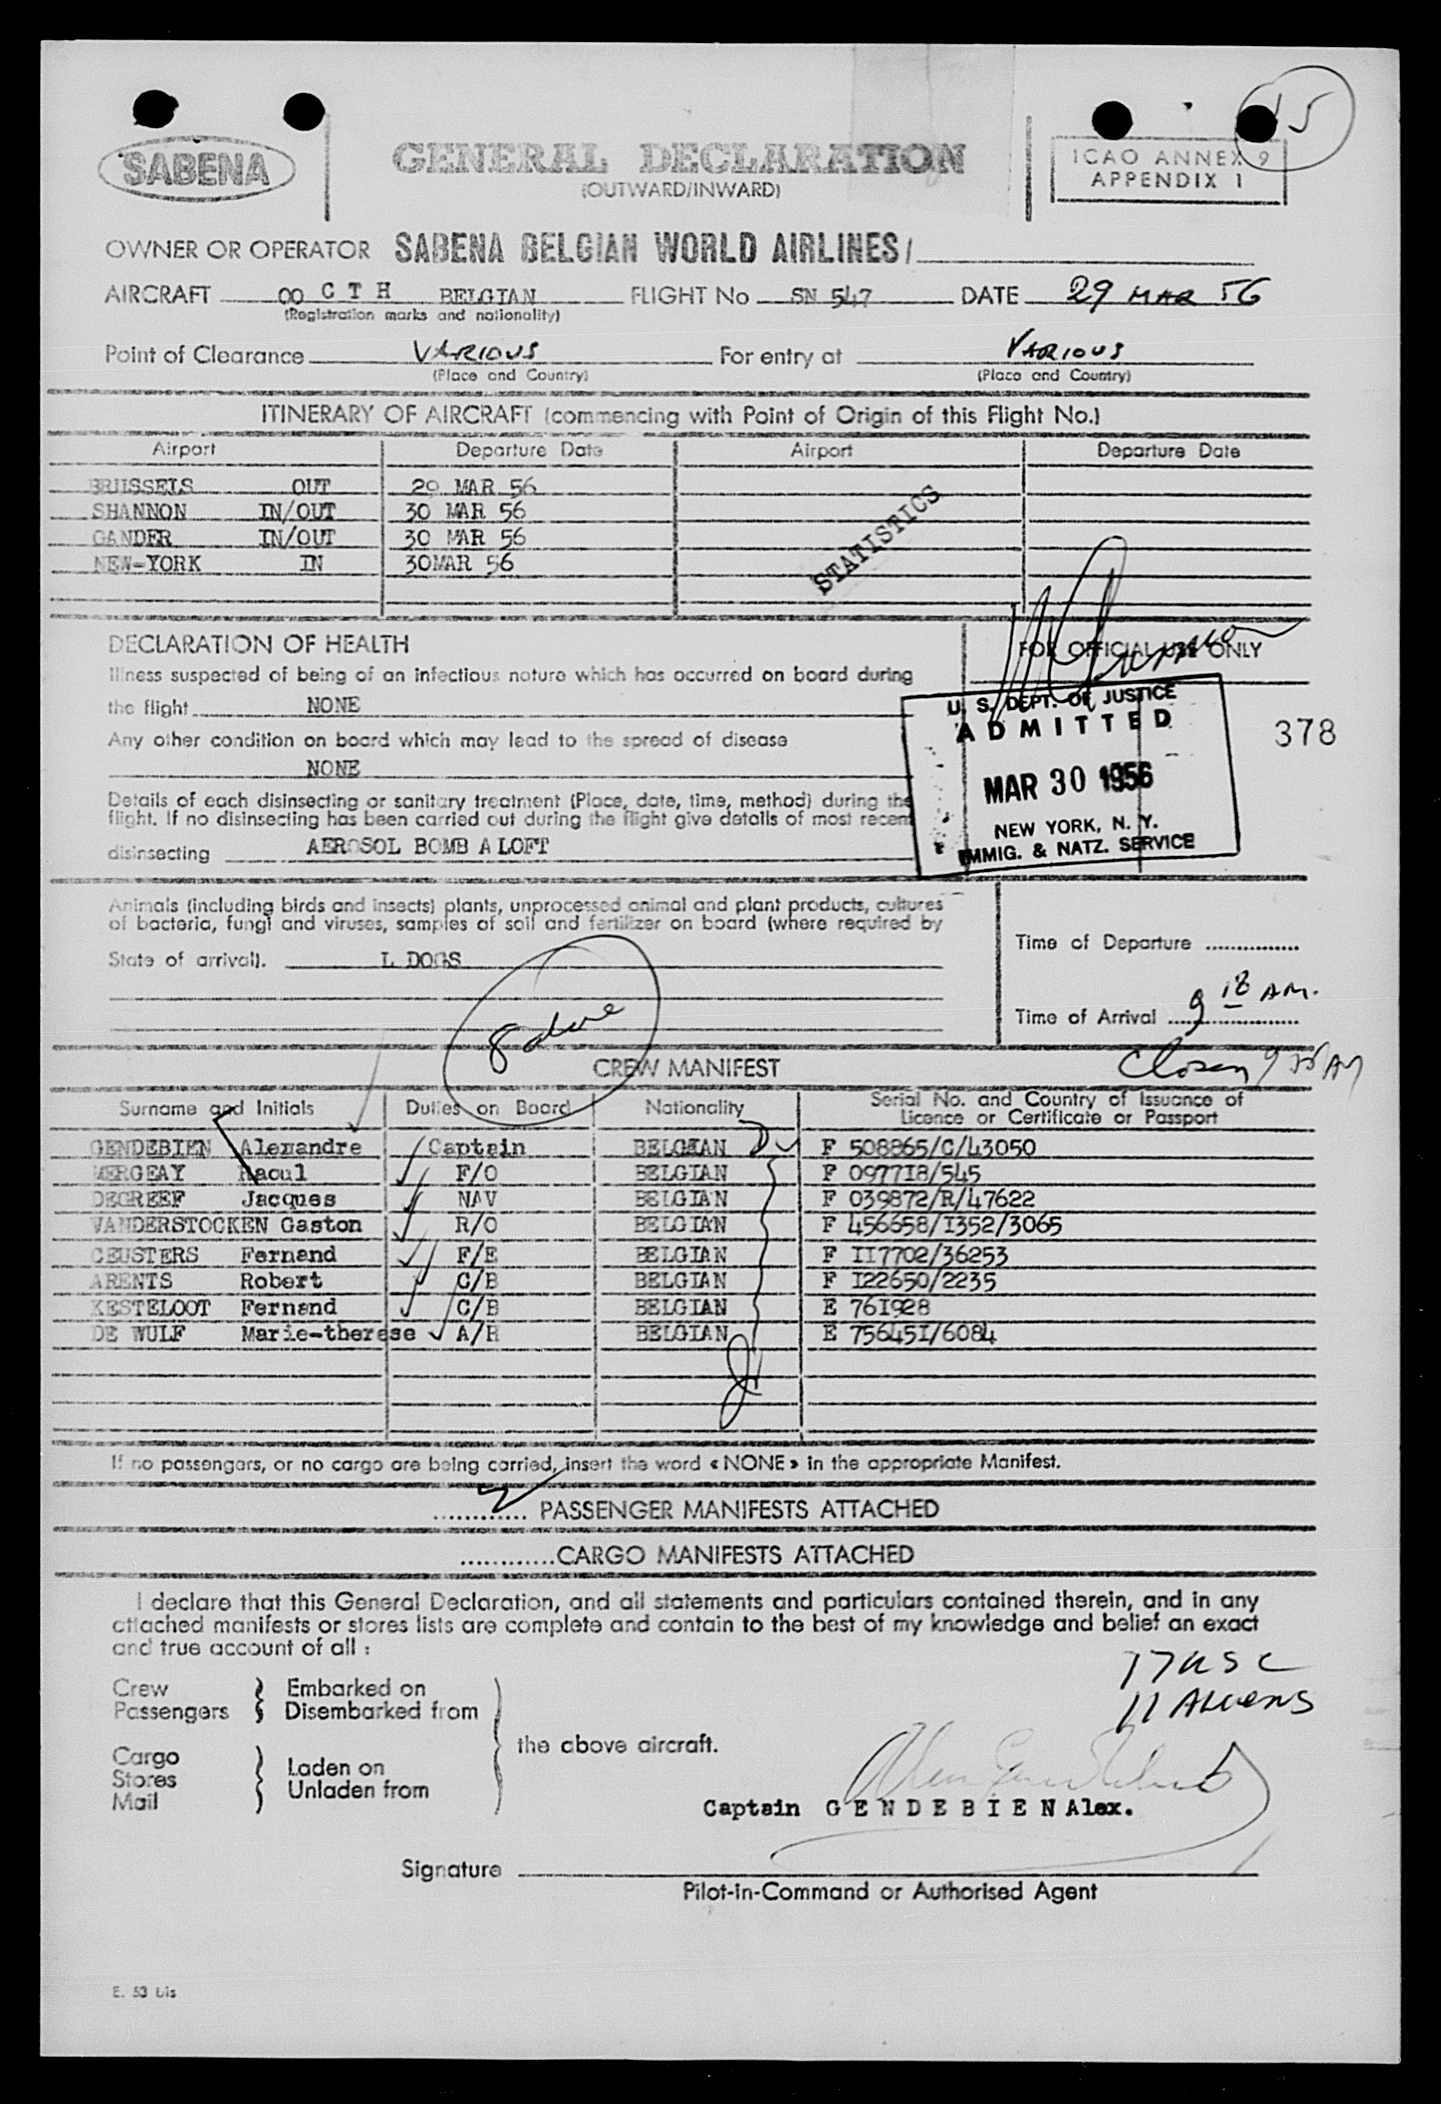 15
SABENA
GENERAL DECLARATION
(OUTWARD/INWARD)
ICAO ANNEX 9
APPENDIX 1
OWNER OR OPERATOR SABENA BELGIAN WORLD AIRLINES/
AIRCRAFT OO C T H BELGIAN FLIGHT No SN 547 DATE 29 MAR 56
(Registration marks and nationality)
Point of Clearance VARIOUS For entry at VARIOUS
(Place and Country) (Place and Country)
ITINERARY OF AIRCRAFT (commencing with Point of Origin of this Flight No.)
Airport Departure Date Airport Departure Date
BRUSSELS OUT 29 MAR 56
SHANNON IN/OUT 30 MAR 56
GANDER IN/OUT 30 MAR 56
NEW-YORK IN 30MAR 56
STATISTICS
DECLARATION OF HEALTH
FOR OFFICIAL USE ONLY
Illness suspected of being of an infectious nature which has occurred on board during
the flight NONE
Any other condition on board which may lead to the spread of disease
NONE
Details of each disinsecting or sanitary treatment (Place, date, time, method) during the
flight. If no disinsecting has been carried out during the flight give details of most recent
disinsecting AEROSOL BOMB ALOFT
U. S. DEPT. OF JUSTICE
ADMITTED
MAR 30 1956
NEW YORK, N. Y.
IMMIG. & NATZ. SERVICE
378
Animals (including birds and insects) plants, unprocessed animal and plant products, cultures
of bacteria, fungi and viruses, samples of soil and fertilizer on board (where required by
State of arrival). L DOGS
Time of Departure
Time of Arrival 9 18 AM.
CREW MANIFEST
Surname and Initials Duties on Board Nationality Serial No. and Country of Issuance of
Licence or Certificate or Passport
GENDEBIEN Alexandre Captain BELGIAN F 508865/C/43050
MERGEAY Raoul F/O BELGIAN F 097718/545
DEGREEF Jacques NAV BELGIAN F 039872/R/47622
VANDERSTOCKEN Gaston R/O BELGIAN F 456658/I352/3065
CEUSTERS Fernand F/E BELGIAN F II7702/36253
ARENTS Robert C/B BELGIAN F I22650/2235
KESTELOOT Fernand C/B BELGIAN E 76I928
DE WULF Marie-therese A/H BELGIAN E 75645I/6084
If no passengers, or no cargo are being carried, insert the word «NONE» in the appropriate Manifest.
2 PASSENGER MANIFESTS ATTACHED
............CARGO MANIFESTS ATTACHED
I declare that this General Declaration, and all statements and particulars contained therein, and in any
attached manifests or stores lists are complete and contain to the best of my knowledge and belief an exact
and true account of all :
17 USC
11 ALIENS
Crew Embarked on
Passengers Disembarked from
the above aircraft.
Cargo
Stores Laden on
Mail Unladen from
Captain G E N D E B I E N Alex.
Signature
Pilot-in-Command or Authorised Agent
E. 53 bis